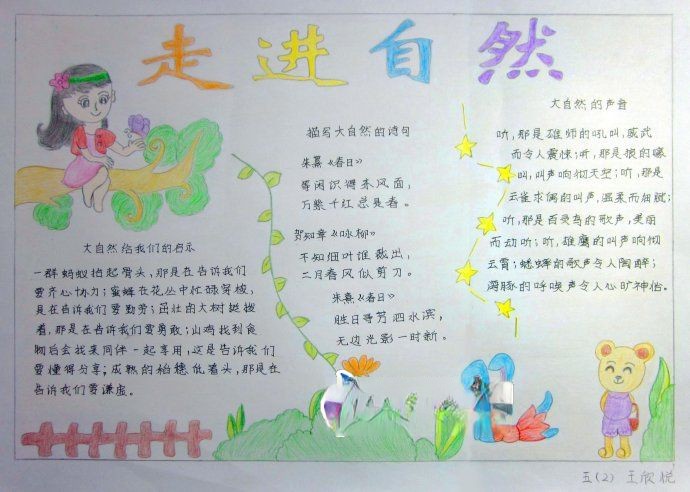 走进自然
描写大自然的诗句
朱熹《春日》
等闲识得东风面，
万紫千红总是春。
贺知章《咏柳》
不知细叶谁裁出，
二月春风似剪刀。
朱熹《春日》
胜日寻芳泗水滨，
无边光影一时新。
大自然的声音
听，那是雄师的吼叫，威武
而令人震悚；听，那是狼的嚎
叫，叫声响彻天空；听，那是
云雀求偶的叫声，温柔而细腻；
听，那是百灵鸟的歌声，美丽
而动听；听，雄鹰的叫声响彻
云霄；蟋蟀的歌声令人陶醉；
海豚的呼唤声令人心旷神怡。
大自然给我们的启示
一群蚂蚁抬起骨头，那是在告诉我们
要齐心协力；蜜蜂在花丛中忙碌
是在告诉我们要勤劳；茁壮的大树挺拔
着，那是在告诉我们要勇敢；山鸡找到食
物后会找来同伴一起享用，这是告诉我们
要懂得分享；成熟的稻穗低着头，那是在
告诉我们要谦虚。
五（2）王欣悦